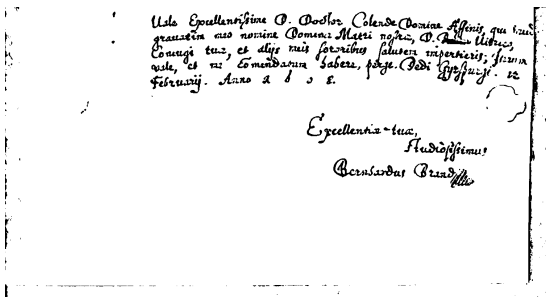 Vale Excellentissime D. Doctor Colende Domine Affinis, qui
gravatim meo nomine Dominæ Matri nostræ, D.
Coniugi tuæ, et alijs meis sororibus salutem impertieris;
vale, et me Com̃endatum habere, perge. Dedi 12
Februarij. Anno 1608.
Excellentiæ tuæ,
Studiosissimus
Bernhardus Brand